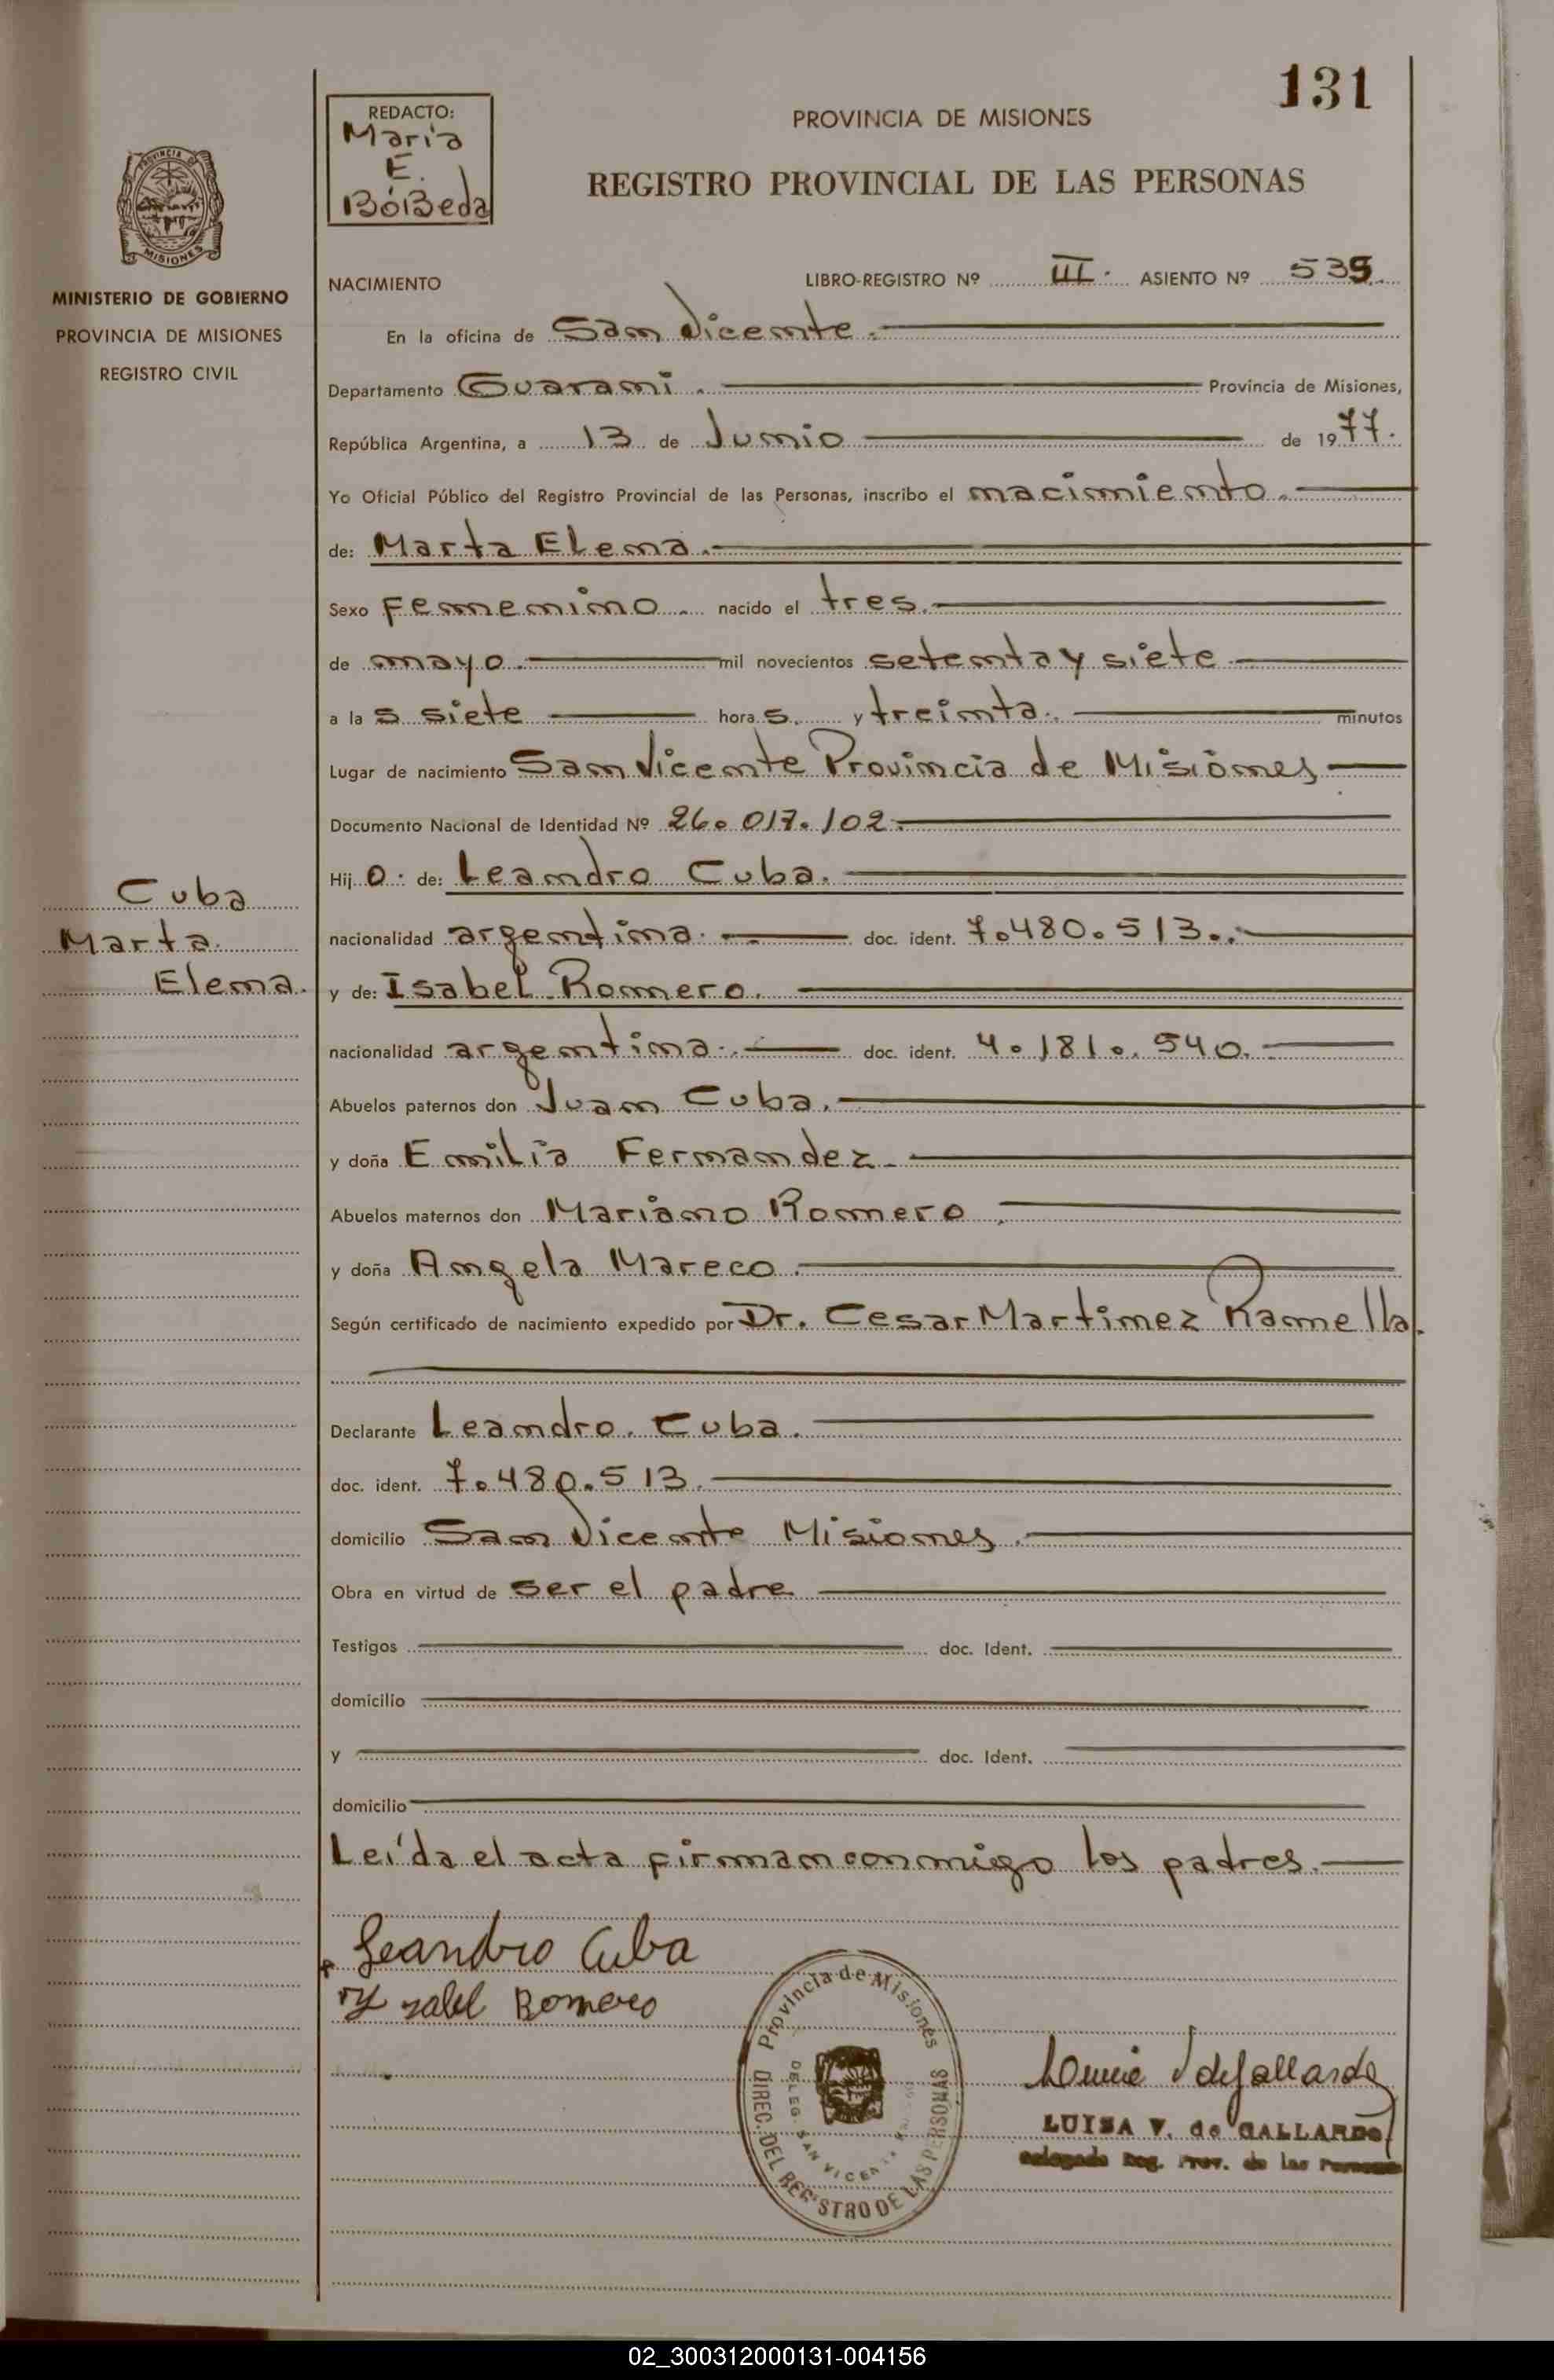 131
REDACTO:
Maria
E.
Bóbeda
PROVINCIA DE MISIONES
REGISTRO PROVINCIAL DE LAS PERSONAS
PROVINCIA DE
MISIONES
MINISTERIO DE GOBIERNO
PROVINCIA DE MISIONES
REGISTRO CIVIL
NACIMIENTO LIBRO-REGISTRO Nº III. ASIENTO Nº 535
En la oficina de San Vicente.
Departamento Guarani. Provincia de Misiones,
República Argentina, a 13 de Junio de 1977.
Yo Oficial Público del Registro Provincial de las Personas, inscribo el nacimiento.
de: Marta Elena.
Sexo femenino. nacido el tres.
de mayo. mil novecientos setenta y siete
a las siete horas. y treinta. minutos
Lugar de nacimiento San Vicente Provincia de Misiones
Documento Nacional de Identidad Nº 26.017.102.
Hijo. de: Leandro Cuba.
Cuba
Marta
Elena.
nacionalidad argentina. doc. ident. 7.480.513.
y de: Isabel Romero.
nacionalidad argentina. doc. ident. 4.181.540.
Abuelos paternos don Juan Cuba.
y doña Emilia Fernandez.
Abuelos maternos don Mariano Romero
y doña Angela Mareco.
Según certificado de nacimiento expedido por Dr. Cesar Martinez Ramella.
Declarante Leandro. Cuba.
doc. ident. 7.480.513.
domicilio San Vicente Misiones.
Obra en virtud de ser el padre
Testigos doc. Ident.
domicilio
y doc. Ident.
domicilio
Leída el acta firman conmigo los padres.
Leandro Cuba
Yzabel Romero
Provincia de Misiones
DIREC. DEL REGISTRO DE LAS PERSONAS
DELEG. SAN VICENTE
LUISA V. de GALLARDO
Delegada Reg. Prov. de las Personas
02_300312000131-004156